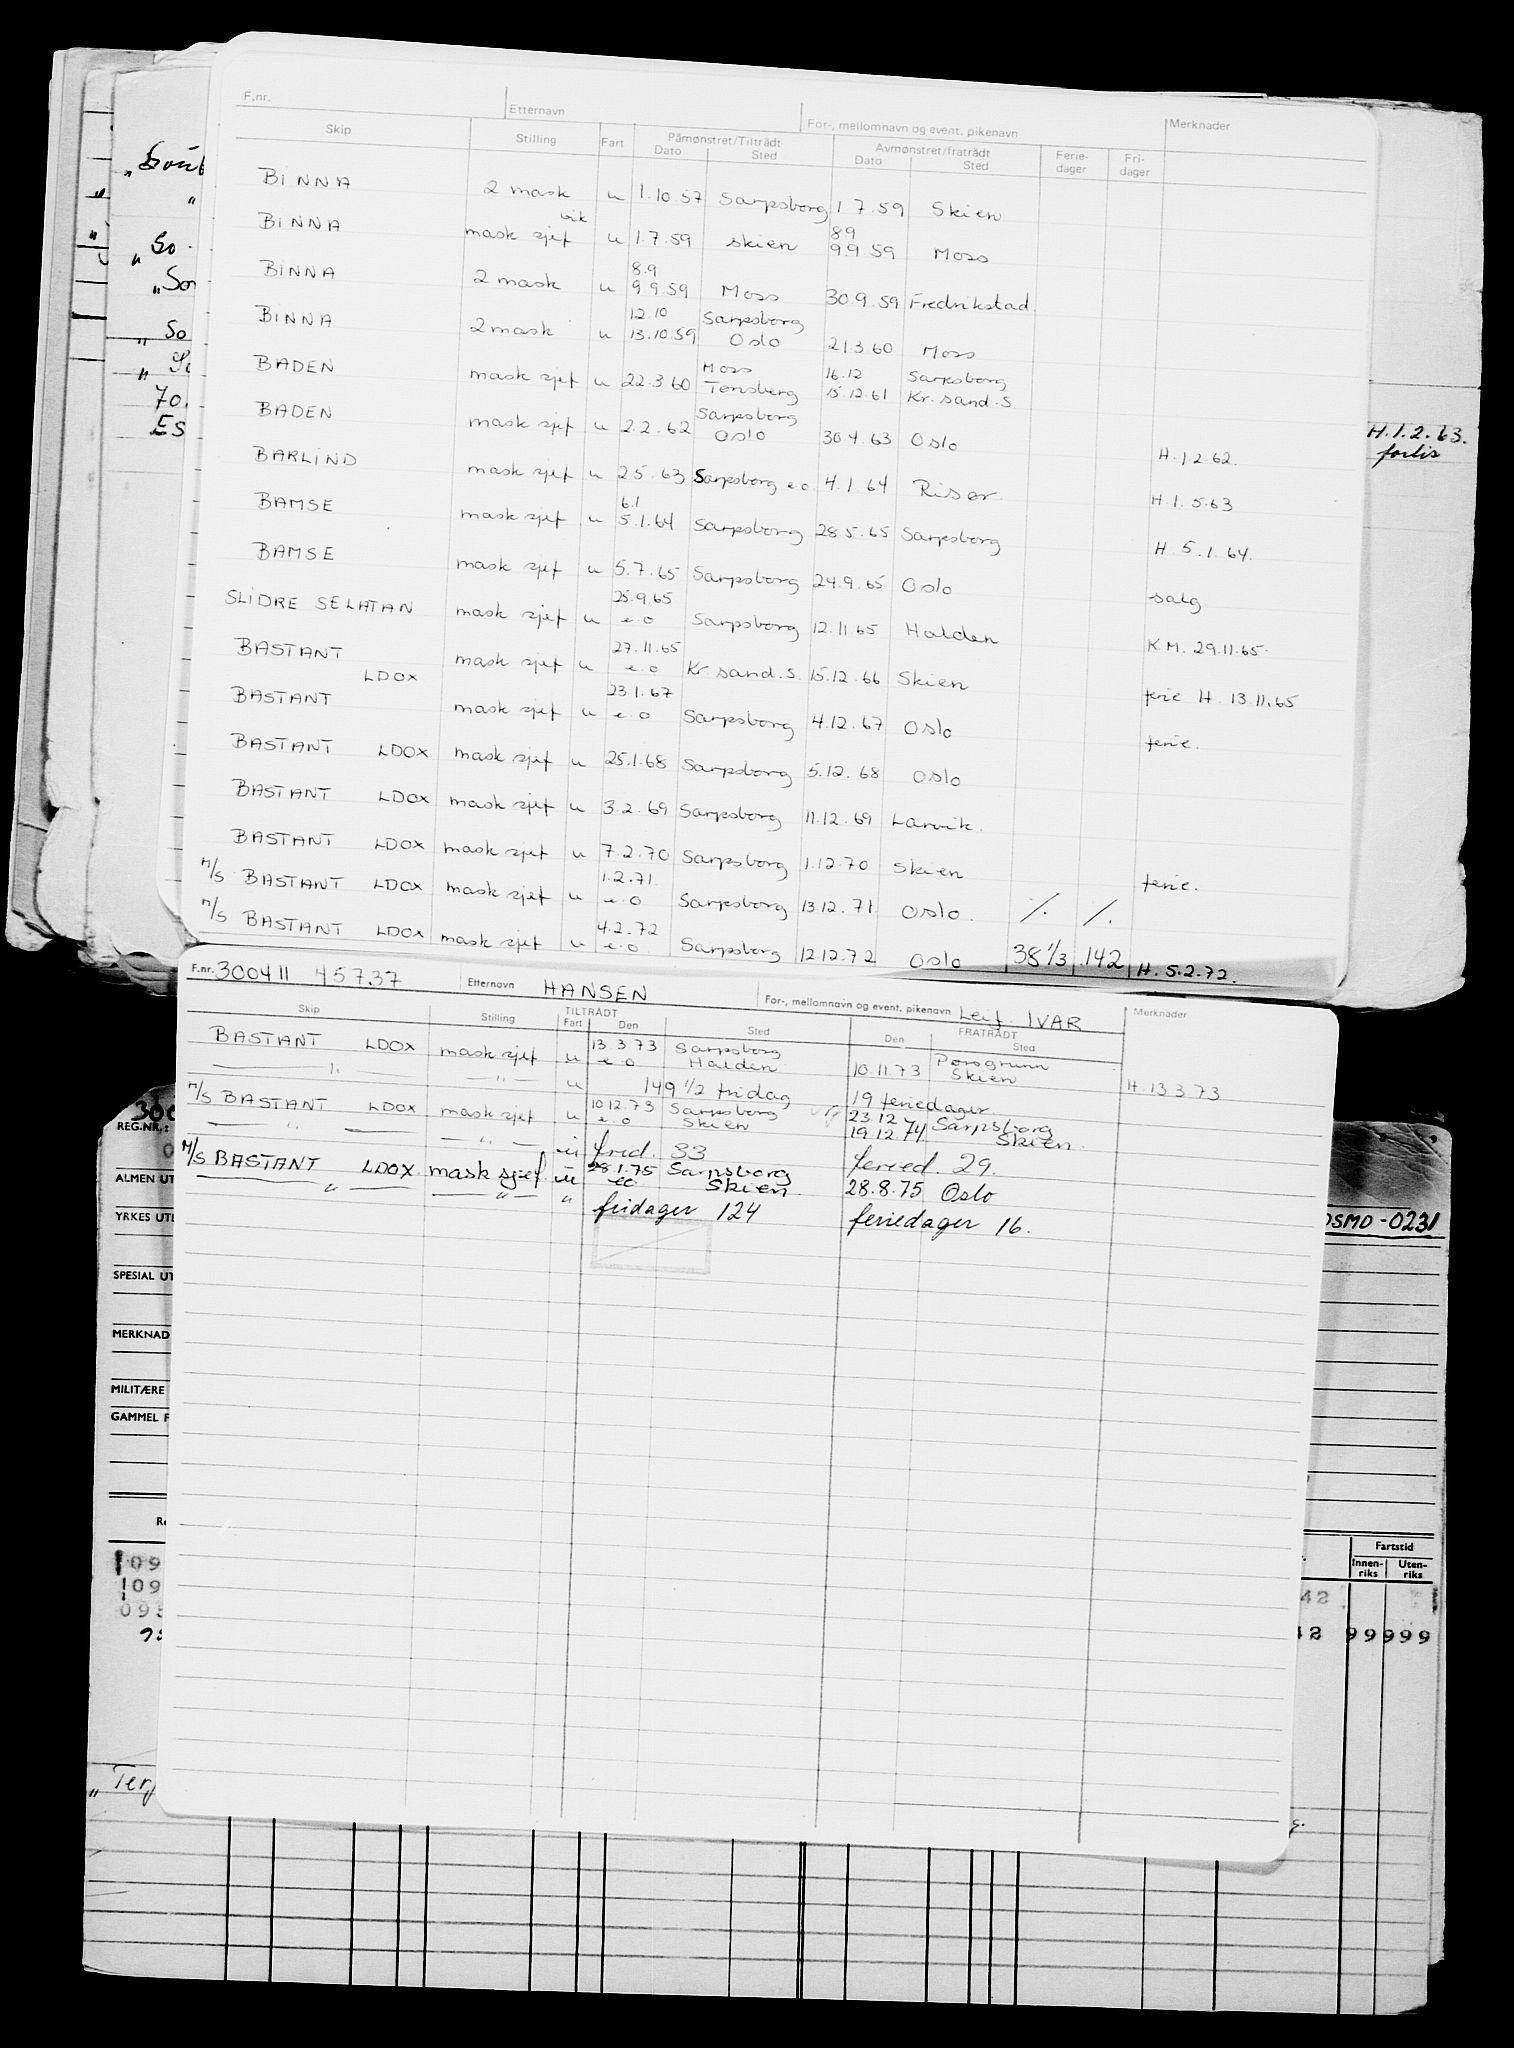 F.nr. Etternavn For-, mellomnavn og event. pikenavn Merknader
Skip Stilling Fart Påmønstret/Tiltrådt Avmønstret/fratrådt Ferie-dager Fri-dager
Dato Sted Dato Sted
BINNA 2 mask u 1.10.57 Sarpsborg 1.7.59 Skien
vik 8.9
BINNA mask sjef u 1.7.59 skien 9.9.59 Moss
8.9
BINNA 2 mask u 9.9.59 Moss 30.9.59 Fredrikstad
12.10 Sarpsborg
BINNA 2 mask u 13.10.59 Oslo 21.3.60 Moss
Moss 16.12 Sarpsborg
BADEN mask sjef u 22.3.60 Tønsberg 15.12.61 Kr. sand. S.
Sarpsborg
BADEN mask sjef u 2.2.62 Oslo 30.4.63 Oslo H.1.2.62.
BARLIND mask sjef u 2.5.63 Sarpsborg e.o 4.1.64 Risør H.1.5.63
6.1
BAMSE mask sjef u 5.1.64 Sarpsborg 28.5.65 Sarpsborg H.5.1.64.
BAMSE mask sjef u 5.7.65 Sarpsborg 24.9.65 Oslo salg
25.9.65
SLIDRE SELATAN mask sjef u e.o Sarpsborg 12.11.65 Halden K.M. 29.11.65.
27.11.65
BASTANT mask sjef u e.o Kr. sand. S. 15.12.66 Skien ferie H. 13.11.65
LDOX 23.1.67
BASTANT mask sjef u e.o Sarpsborg 4.12.67 Oslo ferie.
BASTANT LDOX mask sjef u 25.1.68 Sarpsborg 5.12.68 Oslo
BASTANT LDOX mask sjef u 3.2.69 Sarpsborg 11.12.69 Larvik.
BASTANT LDOX mask sjef u 7.2.70 Sarpsborg 1.12.70 Skien ferie.
1.2.71.
M/S BASTANT LDOX mask sjef u e.o Sarpsborg 13.12.71 Oslo. ·/. ·/.
4.2.72
M/S BASTANT LDOX mask sjef u e.o Sarpsborg 12.12.72 Oslo 38 1/3 142 H.5.2.72.
F.nr. 300411 45737 Etternavn HANSEN For-, mellomnavn og event. pikenavn Leif IVAR Merknader
Skip Stilling Fart TILTRÅDT Den Sted Den FRATRÅDT Sted
BASTANT LDOX mask sjef u 13.3.73 Sarpsborg Porsgrunn
e.o Halden 10.11.73 Skien
— " — — " — u 149 1/2 fridag 19 feriedager. H.13.3.73
M/S BASTANT LDOX mask sjef u 10.12.73 Sarpsborg 23.12 Sarpsborg
e.o Skien 19.12.74 Skien.
— " — — " — u frid. 33 feried. 29.
M/S BASTANT LDOX mask sjef u 28.1.75 Sarpsborg
eo Skien. 28.8.75 Oslo
— " — — " — " fridager 124 feriedager 16.
H.1.2.63.
forlis
70.
ES
REG.NR.:
ALMEN UT
YRKES UT
SPESIAL UT
MERKNAD
MILITÆRE
GAMMEL F
OSMO-0231
Fartstid
Innen-riks Uten-riks
109
109
42
42 99999
„Terj